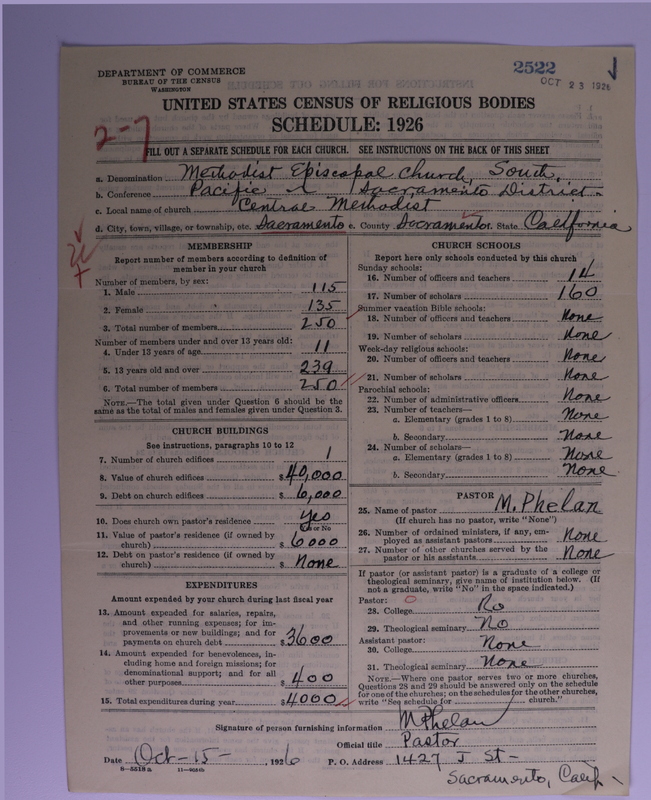 DEPARTMENT OF COMMERCE
BUREAU OF THE CENSUS
WASHINGTON
2522
OCT 23 1926
UNITED STATES CENSUS OF RELIGIOUS BODIES
SCHEDULE: 1926
2-7
FILL OUT A SEPARATE SCHEDULE FOR EACH CHURCH. SEE INSTRUCTIONS ON THE BACK OF THIS SHEET
a. Denomination Methodist Episcopal Church, South,
b. Conference Pacific Sacramento District
c. Local name of church Central Methodist
d. City, town, village, or township, etc. Sacramento e. County Sacramento f. State California
MEMBERSHIP
Report number of members according to definition of
member in your church
Number of members, by sex:
1. Male 115
2. Female 135
3. Total number of members 250
Number of members under and over 13 years old:
4. Under 13 years of age 11
5. 13 years old and over 239
6. Total number of members 250
NOTE.—The total given under Question 6 should be the
same as the total of males and females given under Question 3.
CHURCH BUILDINGS
See instructions, paragraphs 10 to 12
7. Number of church edifices 1
8. Value of church edifices $40,000
9. Debt on church edifices $6,000
10. Does church own pastor's residence Yes
Yes or No
11. Value of pastor's residence (if owned by
church) $6000
12. Debt on pastor's residence (if owned by
church) $None
EXPENDITURES
Amount expended by your church during last fiscal year
13. Amount expended for salaries, repairs,
and other running expenses; for im-
provements or new buildings; and for
payments on church debt $3600
14. Amount expended for benevolences, in-
cluding home and foreign missions; for
denominational support; and for all
other purposes $400
15. Total expenditures during year $4000
CHURCH SCHOOLS
Report here only schools conducted by this church
Sunday schools:
16. Number of officers and teachers 14
17. Number of scholars 160
Summer vacation Bible schools:
18. Number of officers and teachers None
19. Number of scholars None
Week-day religious schools:
20. Number of officers and teachers None
21. Number of scholars None
Parochial schools:
22. Number of administrative officers None
23. Number of teachers—
a. Elementary (grades 1 to 8) None
b. Secondary None
24. Number of scholars—
a. Elementary (grades 1 to 8) None
b. Secondary None
PASTOR
25. Name of pastor M. Phelan
(If church has no pastor, write "None")
26. Number of ordained ministers, if any, em-
ployed as assistant pastors None
27. Number of other churches served by the
pastor or his assistants None
If pastor (or assistant pastor) is a graduate of a college or
theological seminary, give name of institution below. (If
not a graduate, write "No" in the space indicated.)
Pastor: 0
28. College No
29. Theological seminary No
Assistant pastor:
30. College None
31. Theological seminary None
NOTE.—Where one pastor serves two or more churches,
Questions 28 and 29 should be answered only on the schedule
for one of the churches; on the schedules for the other churches,
write "See schedule for church."
Signature of person furnishing information M Phelan
Official title Pastor
Date Oct-15-, 1926 P. O. Address 1427 J St-
8-5518a
Sacramento, Calif